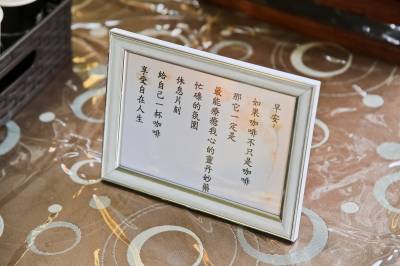 早安,
如果咖啡不只是咖啡
那它一定是
最能療癒我心的靈丹妙藥
忙碌的氛圍
休息片刻
給自己一杯咖啡
享受自在人生